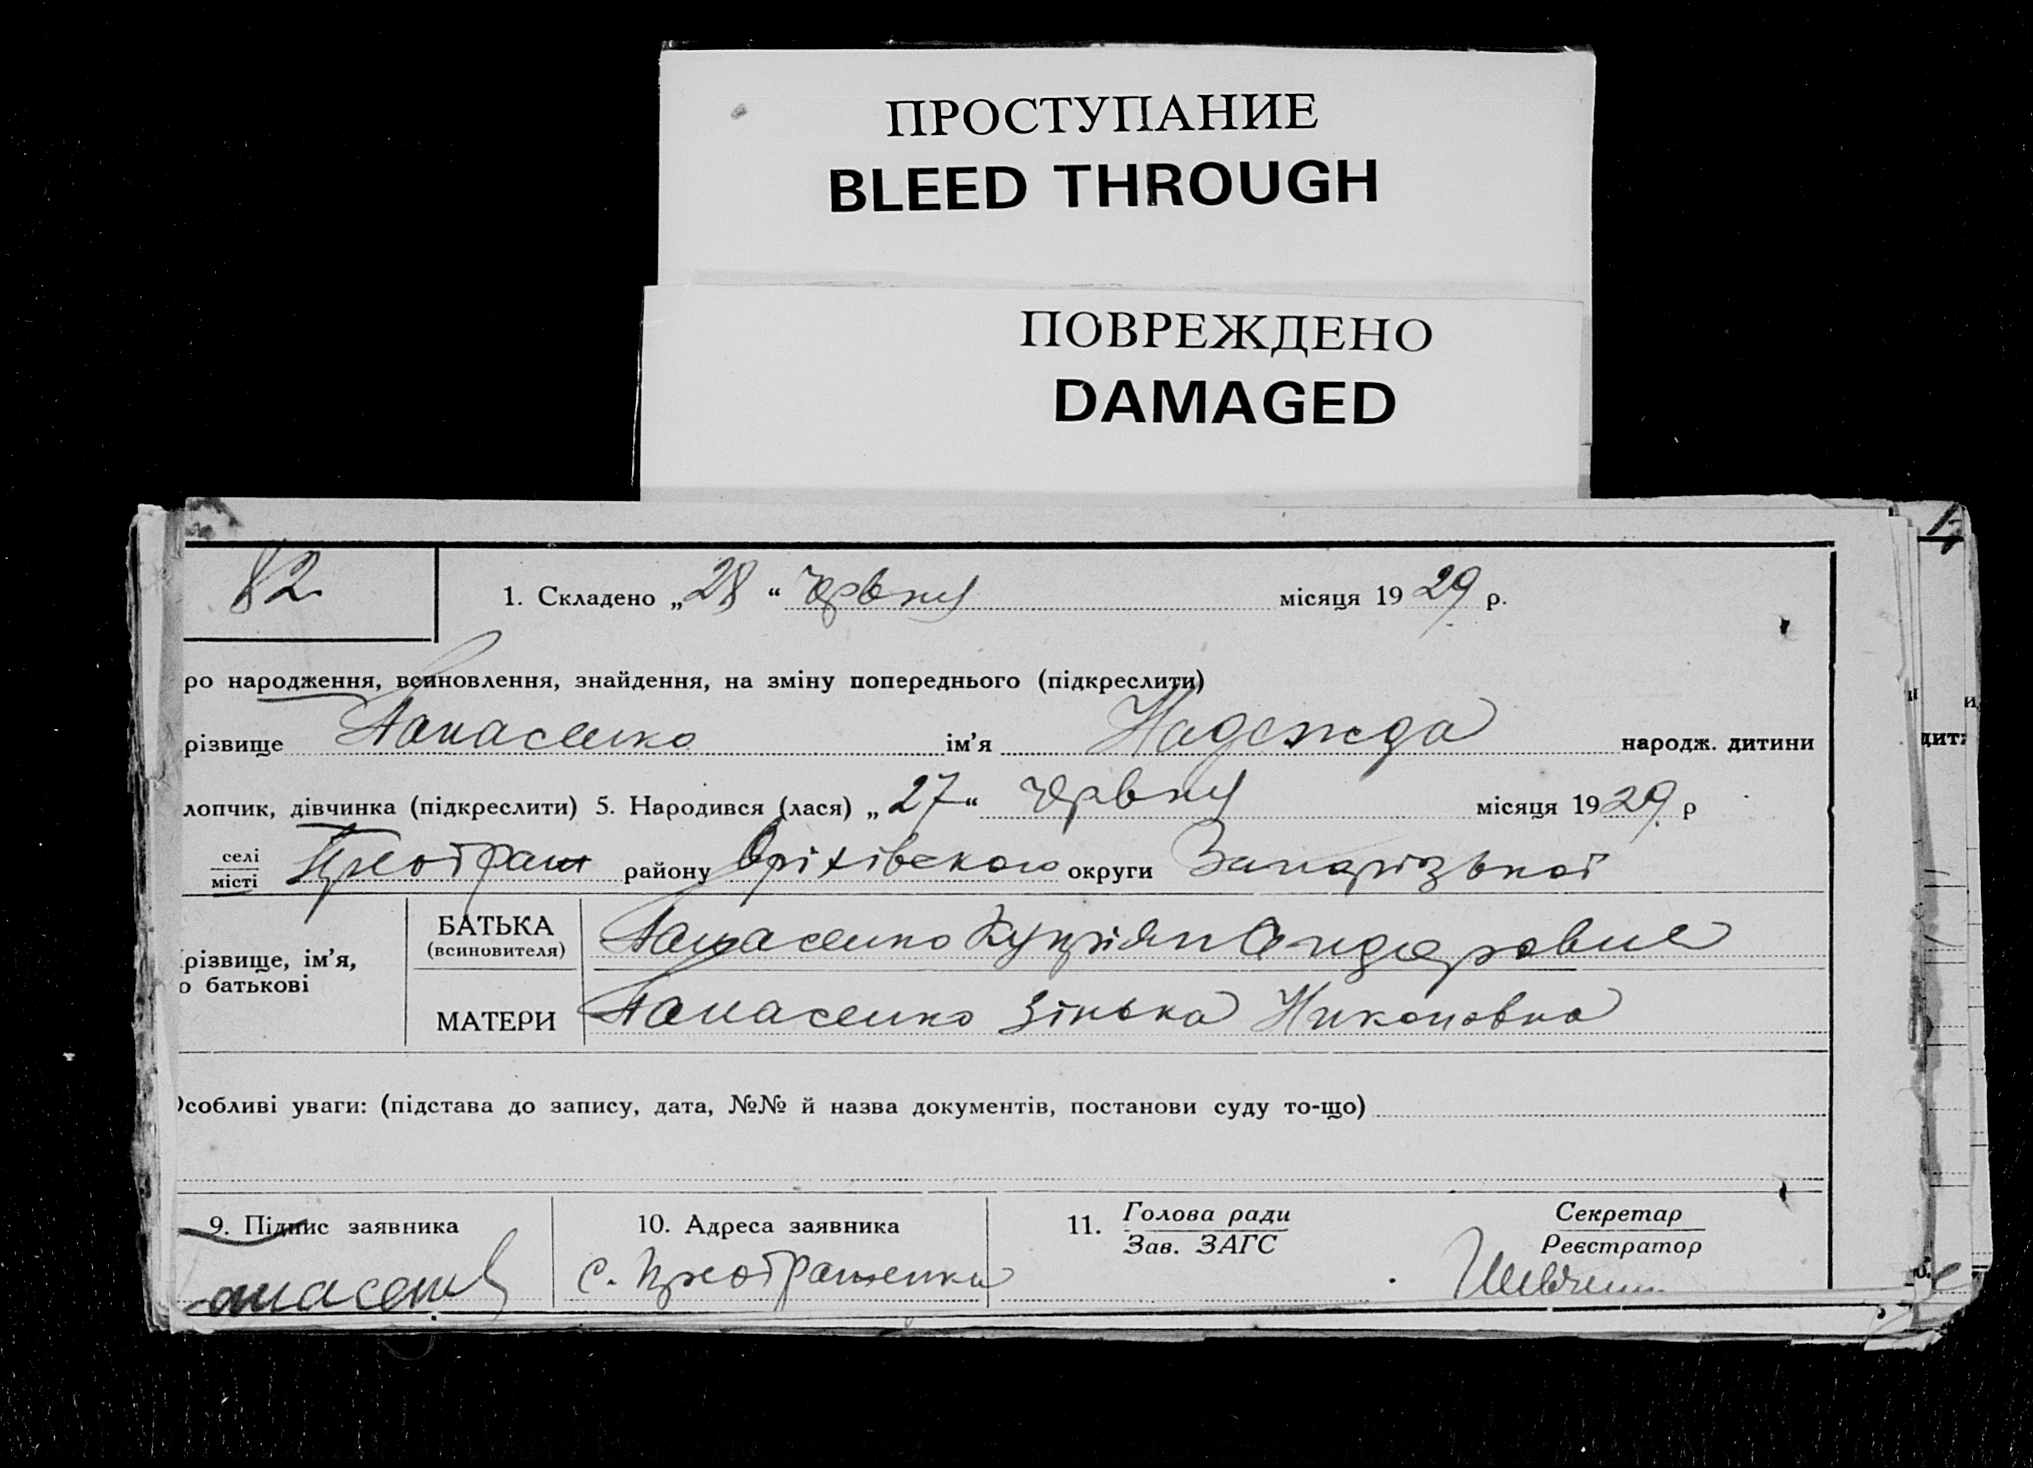 ПРОСТУПАНИЕ
BLEED THROUGH
ПОВРЕЖДЕНО
DAMAGED
82
1. Складено „28“ червня місяця 1929 р.
ро народження, всиновлення, знайдення, на зміну попереднього (підкреслити)
різвище Панасенко ім'я Надежда народж. дитини
лопчик, дівчинка (підкреслити) 5. Народився (лася) „27“ червня місяця 1929 р
селі
місті
району Оріхівского округи Запорізької
різвище, ім'я,
о батькові
БАТЬКА
(всиновителя)
Панасенко
МАТЕРИ
Панасенко Зінька Никоновна
Особливі уваги: (підстава до запису, дата, №№ й назва документів, постанови суду то-що)
9. Підпис заявника
10. Адреса заявника
с.
11. Голова ради
Зав. ЗАГС
Секретар
Реєстратор